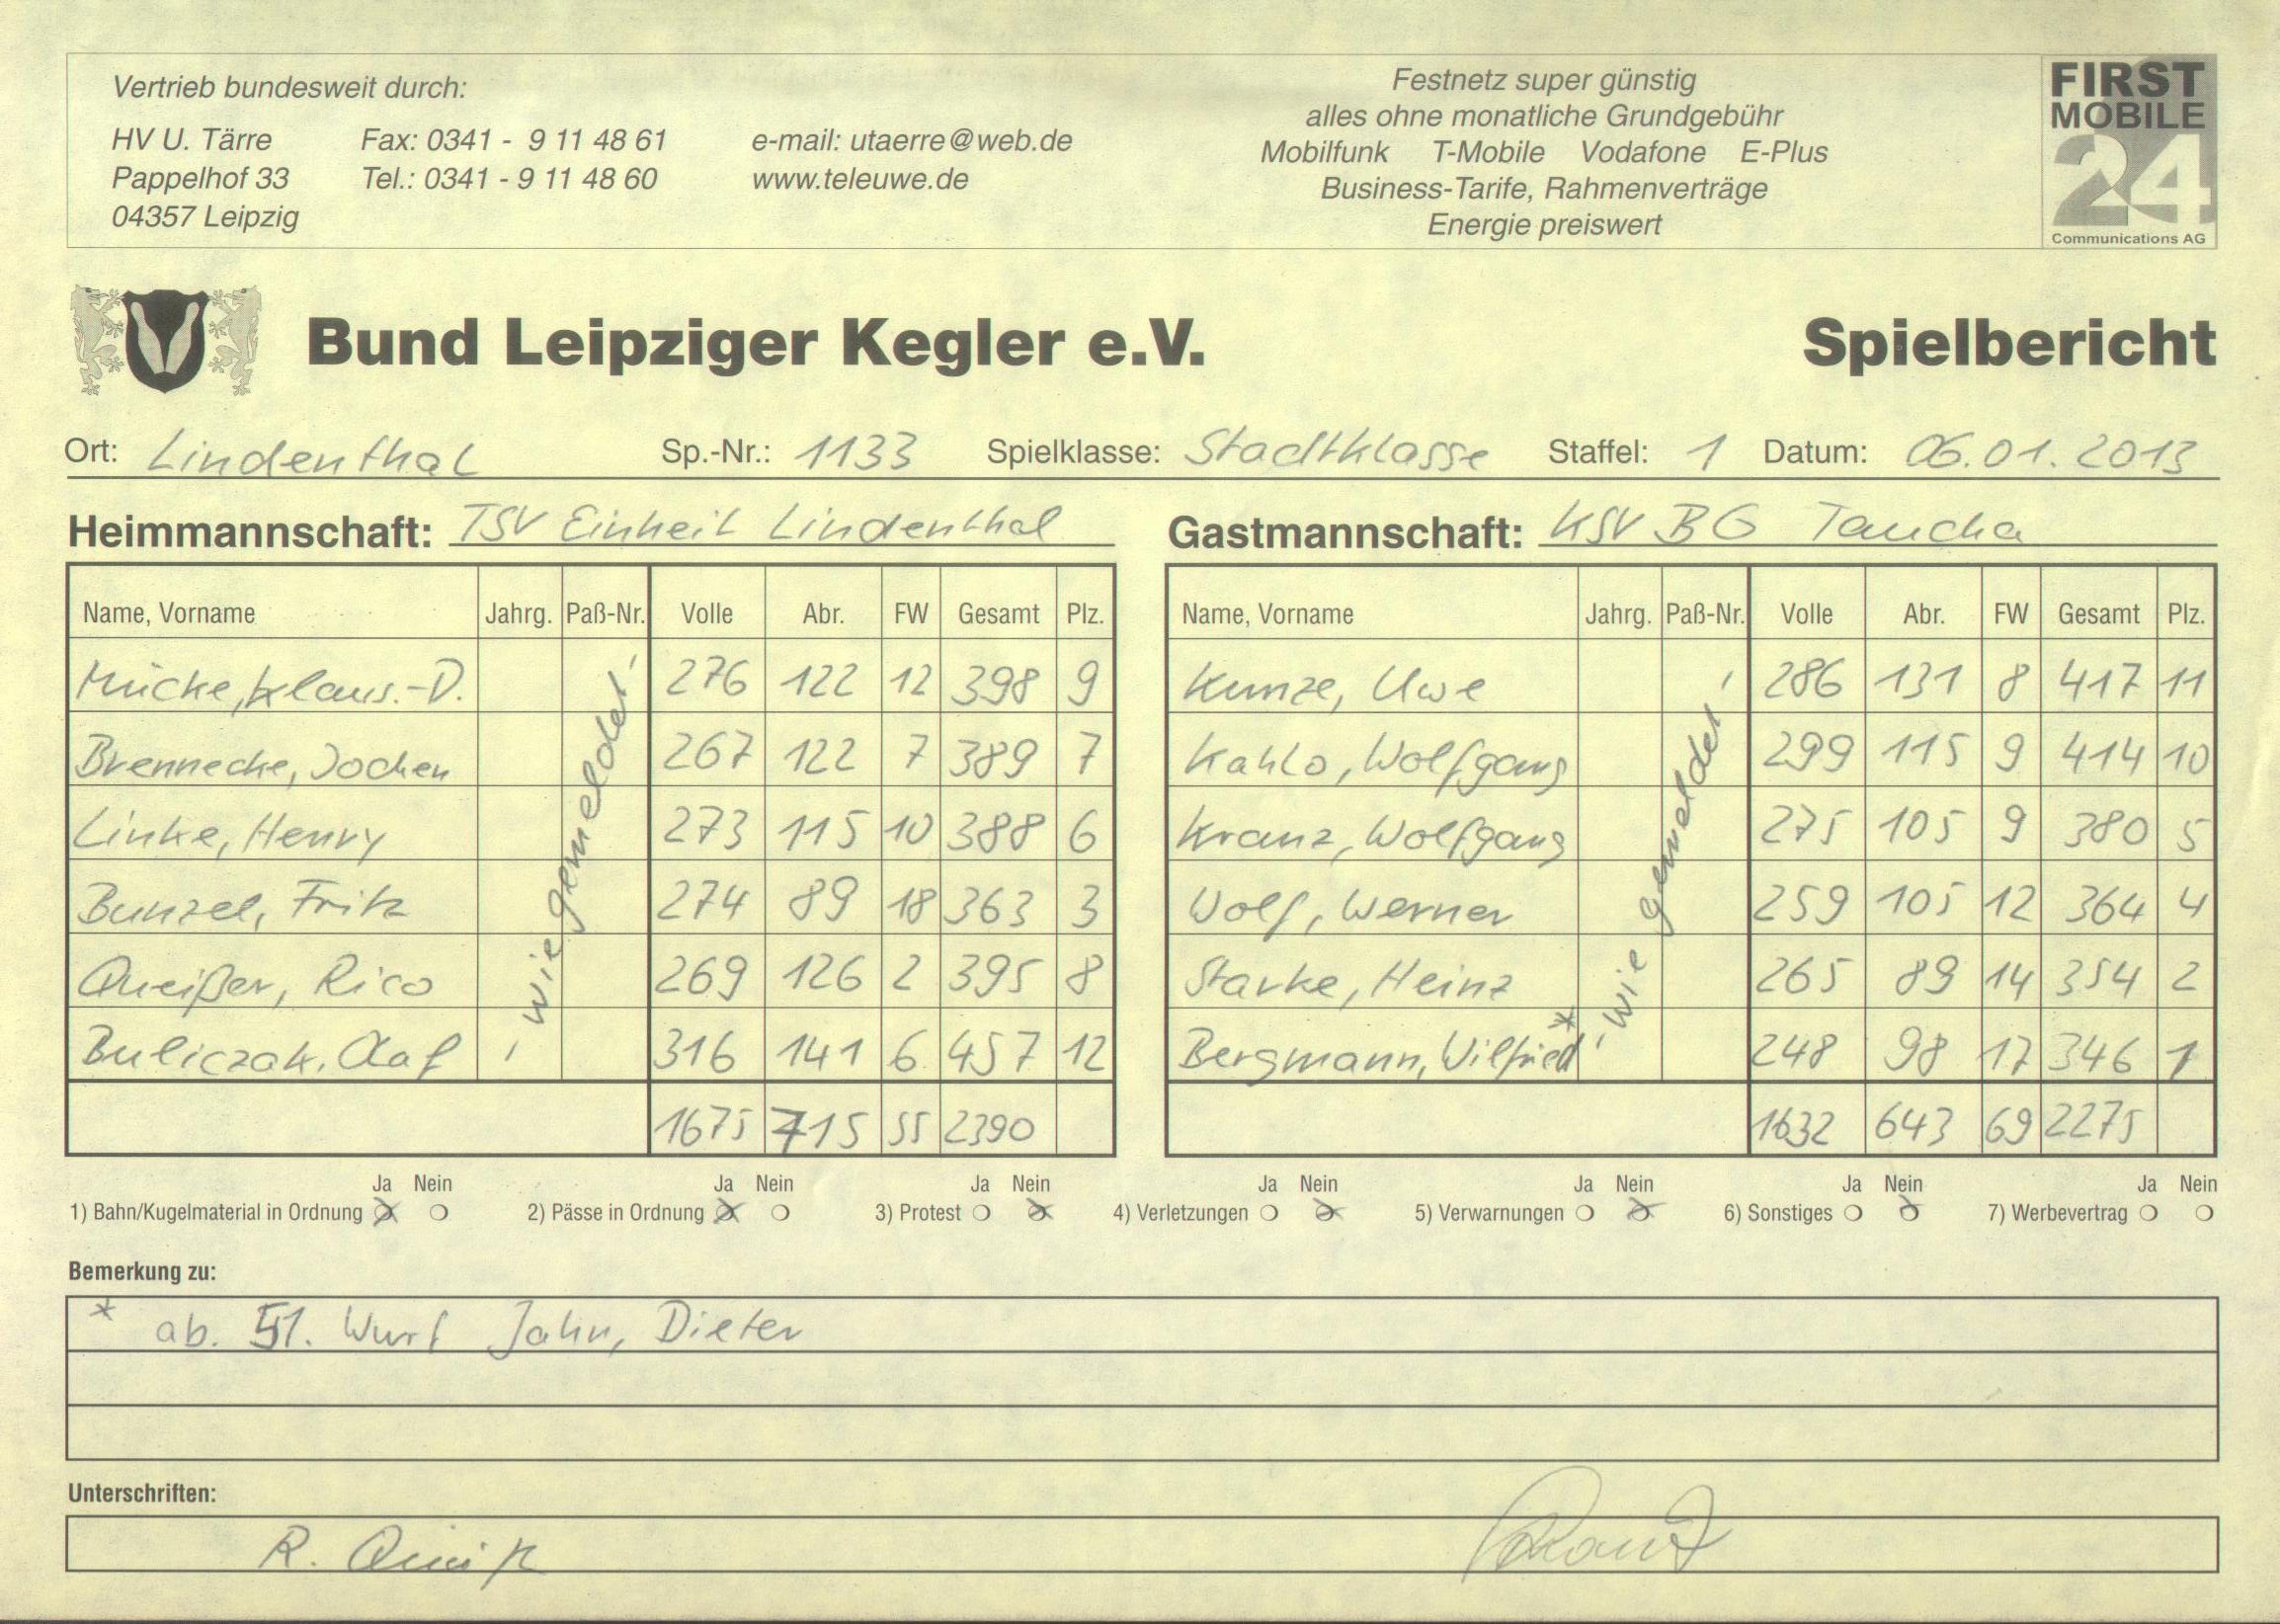 Vertrieb bundesweit durch:
HV U. Tärre Fax: 0341 - 9 11 48 61 e-mail: utaerre@web.de
Pappelhof 33 Tel.: 0341 - 9 11 48 60 www.teleuwe.de
04357 Leipzig
Festnetz super günstig
alles ohne monatliche Grundgebühr
Mobilfunk T-Mobile Vodafone E-Plus
Business-Tarife, Rahmenverträge
Energie preiswert
FIRST
MOBILE
24
Communications AG
Bund Leipziger Kegler e.V. Spielbericht
Ort: Lindenthal Sp.-Nr.: 1133 Spielklasse: Stadtklasse Staffel: 1 Datum: 06.01.2013
Heimmannschaft: TSV Einheit Lindenthal
Name, Vorname Jahrg. Paß-Nr. Volle Abr. FW Gesamt Plz.
Mücke, Klaus.-D. 276 122 12 398 9
Brennecke, Jochen 267 122 7 389 7
Linke, Henry 273 115 10 388 6
Bunzel, Fritz 274 89 18 363 3
Queißer, Rico 269 126 2 395 8
Buliczak, Olaf 316 141 6 457 12
- wie gemeldet -
1675 715 55 2390
Gastmannschaft: KSV BG Taucha
Name, Vorname Jahrg. Paß-Nr. Volle Abr. FW Gesamt Plz.
Kunze, Uwe 286 131 8 417 11
Kahlo, Wolfgang 299 115 9 414 10
Kranz, Wolfgang 275 105 9 380 5
Wolf, Werner 259 105 12 364 4
Starke, Heinz 265 89 14 354 2
Bergmann, Wilfried* 248 98 17 346 1
- wie gemeldet -
1632 643 69 2275
Ja Nein Ja Nein Ja Nein Ja Nein Ja Nein Ja Nein Ja Nein
1) Bahn/Kugelmaterial in Ordnung 2) Pässe in Ordnung 3) Protest 4) Verletzungen 5) Verwarnungen 6) Sonstiges 7) Werbevertrag
Bemerkung zu:
* ab. 51. Wurf Jahn, Dieter
Unterschriften:
R.